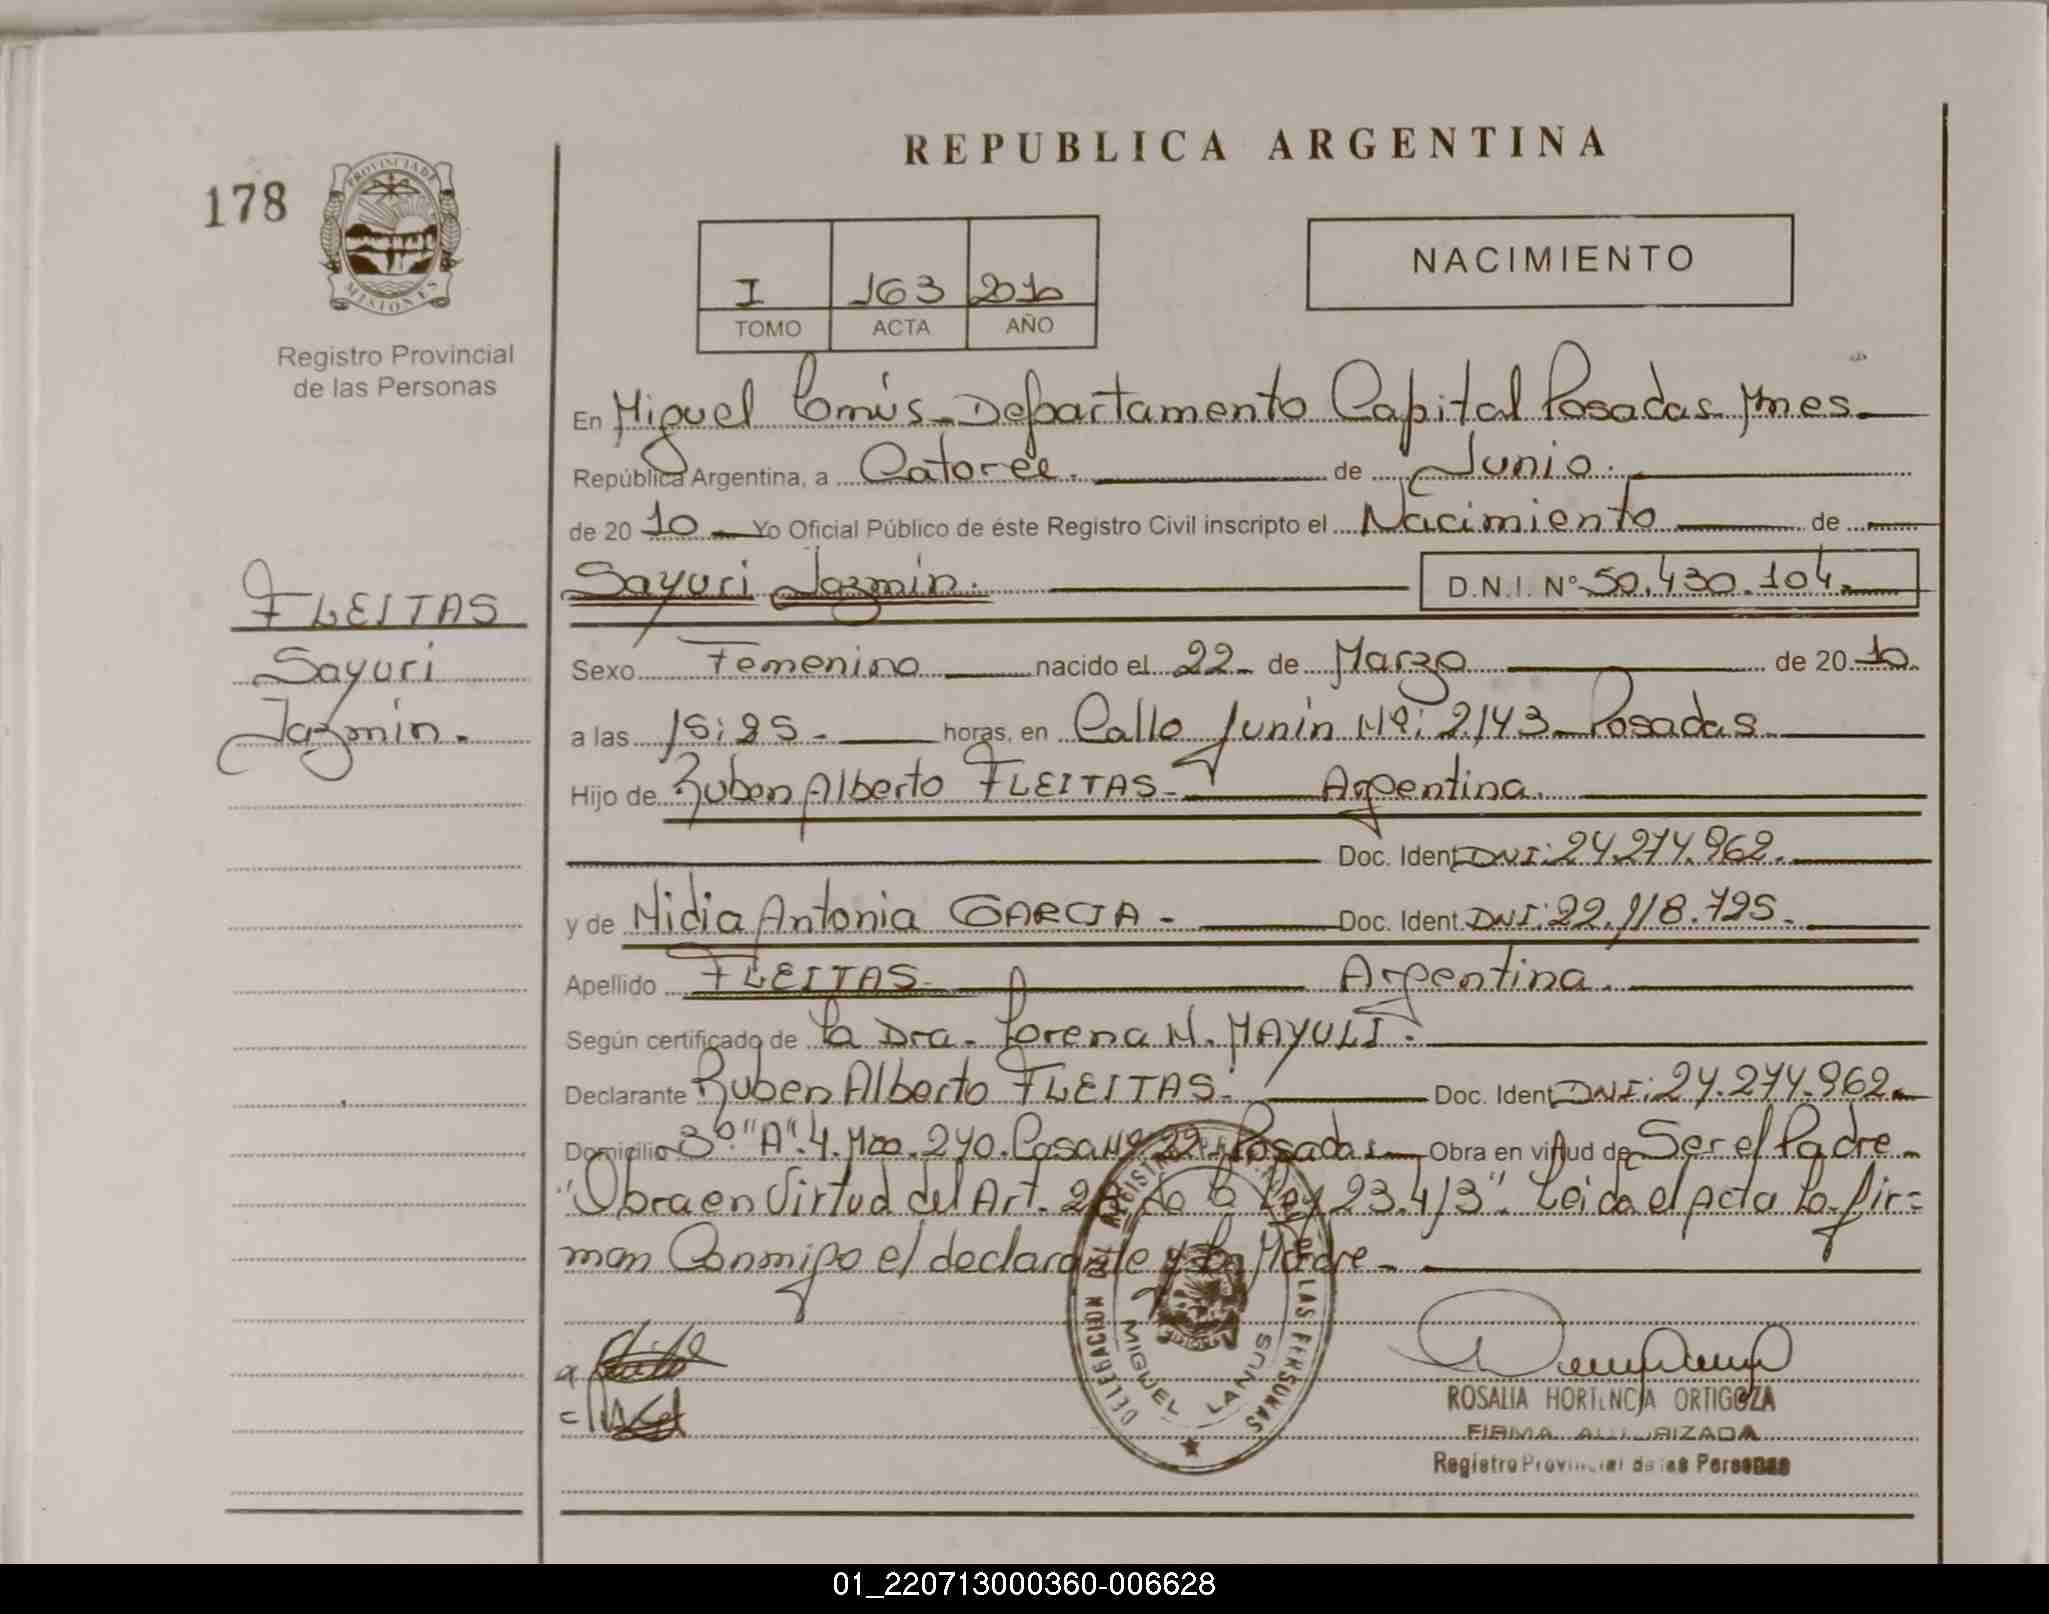 REPUBLICA ARGENTINA
178
PROVINCIA DE MISIONES
Registro Provincial
de las Personas
I 163 2010
TOMO ACTA AÑO
NACIMIENTO
En Miguel Lanús - Departamento Capital Posadas Mnes.
República Argentina, a Catorce. de Junio.
de 20 10. Yo Oficial Público de éste Registro Civil inscripto el Nacimiento de
Sayuri Jazmín. D.N.I. Nº 50.430.104.
FLEITAS
Sayuri
Jazmín.
Sexo Femenino nacido el 22 de Marzo de 20 10.
a las 15:25 - horas, en Calle Junín Nº: 2143 - Posadas
Hijo de Ruben Alberto FLEITAS - Argentina.
Doc. Ident DNI: 24.274.962.
y de Nidia Antonia GARCIA - Doc. Ident. DNI: 22.118.725.
Apellido FLEITAS - Argentina.
Según certificado de la Dra. Lorena N. MAYULI.
Declarante Ruben Alberto FLEITAS. Doc. Ident DNI: 24.274.962.
Domicilio 3º "A". 4. Mza. 240. Casa Nº 22 - Posadas Obra en virtud de Ser el Padre -
"Obra en Virtud del Art. de la Ley 23.413". Leida el Acta la fir=
man Conmigo el declarante y la Madre -
DELEGACION DEL REGISTRO PROVINCIAL DE LAS PERSONAS
MIGUEL LANUS
ROSALIA HORTENCIA ORTIGOZA
FIRMA AUTORIZADA
Registro Provincial de las Personas
01_220713000360-006628